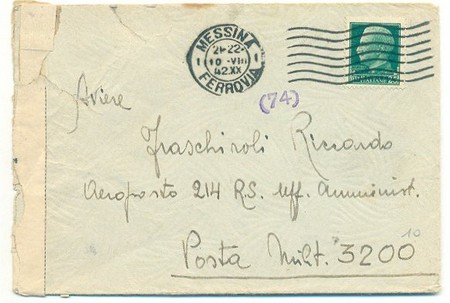 MESSINA
21-22
10·VIII
42XX
FERROVIA
(74)
Aviere
Fraschiroli Riccardo
Aeroposto 214 R.S. Uff. Amminist.
Posta Milt. 3200
10